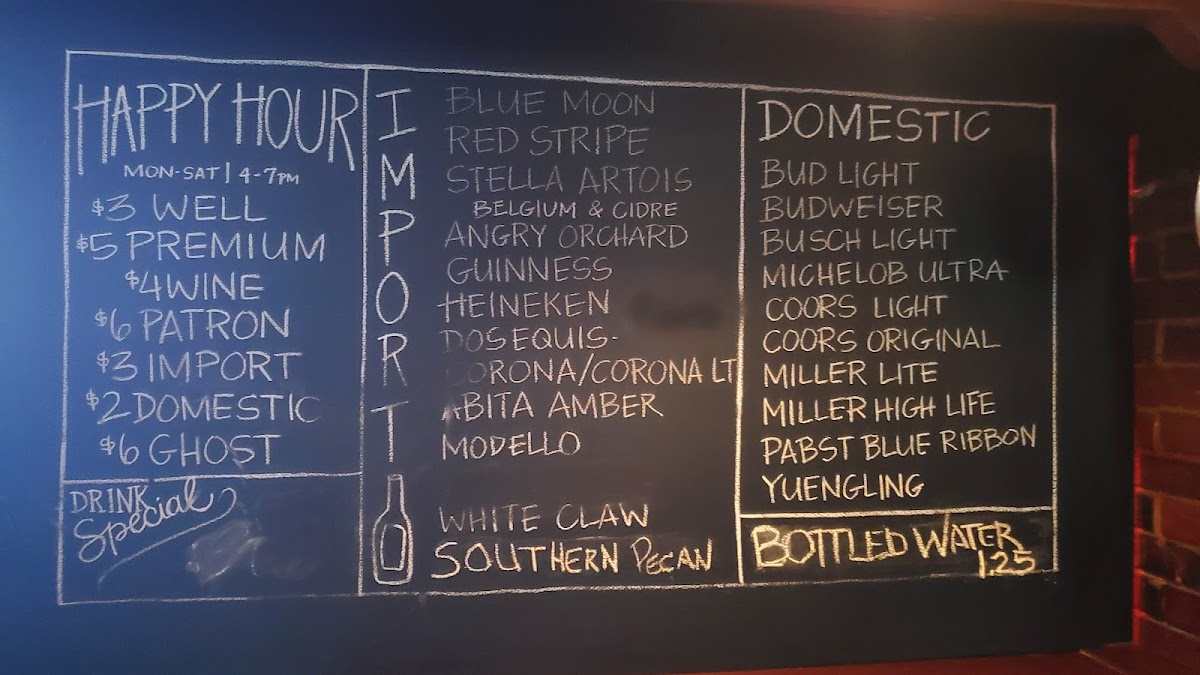 HAPPY HOUR
MON-SAT | 4-7PM
$3 WELL
$5 PREMIUM
$4 WINE
$6 PATRON
$3 IMPORT
$2 DOMESTIC
$6 GHOST
DRINK
Special
IMPORT
BLUE MOON
RED STRIPE
STELLA ARTOIS
BELGIUM & CIDRE
ANGRY ORCHARD
GUINNESS
HEINEKEN
DOS EQUIS-
CORONA/CORONA LT
ABITA AMBER
MODELLO
WHITE CLAW
SOUTHERN PECAN
DOMESTIC
BUD LIGHT
BUDWEISER
BUSCH LIGHT
MICHELOB ULTRA
COORS LIGHT
COORS ORIGINAL
MILLER LITE
MILLER HIGH LIFE
PABST BLUE RIBBON
YUENGLING
BOTTLED WATER
1.25